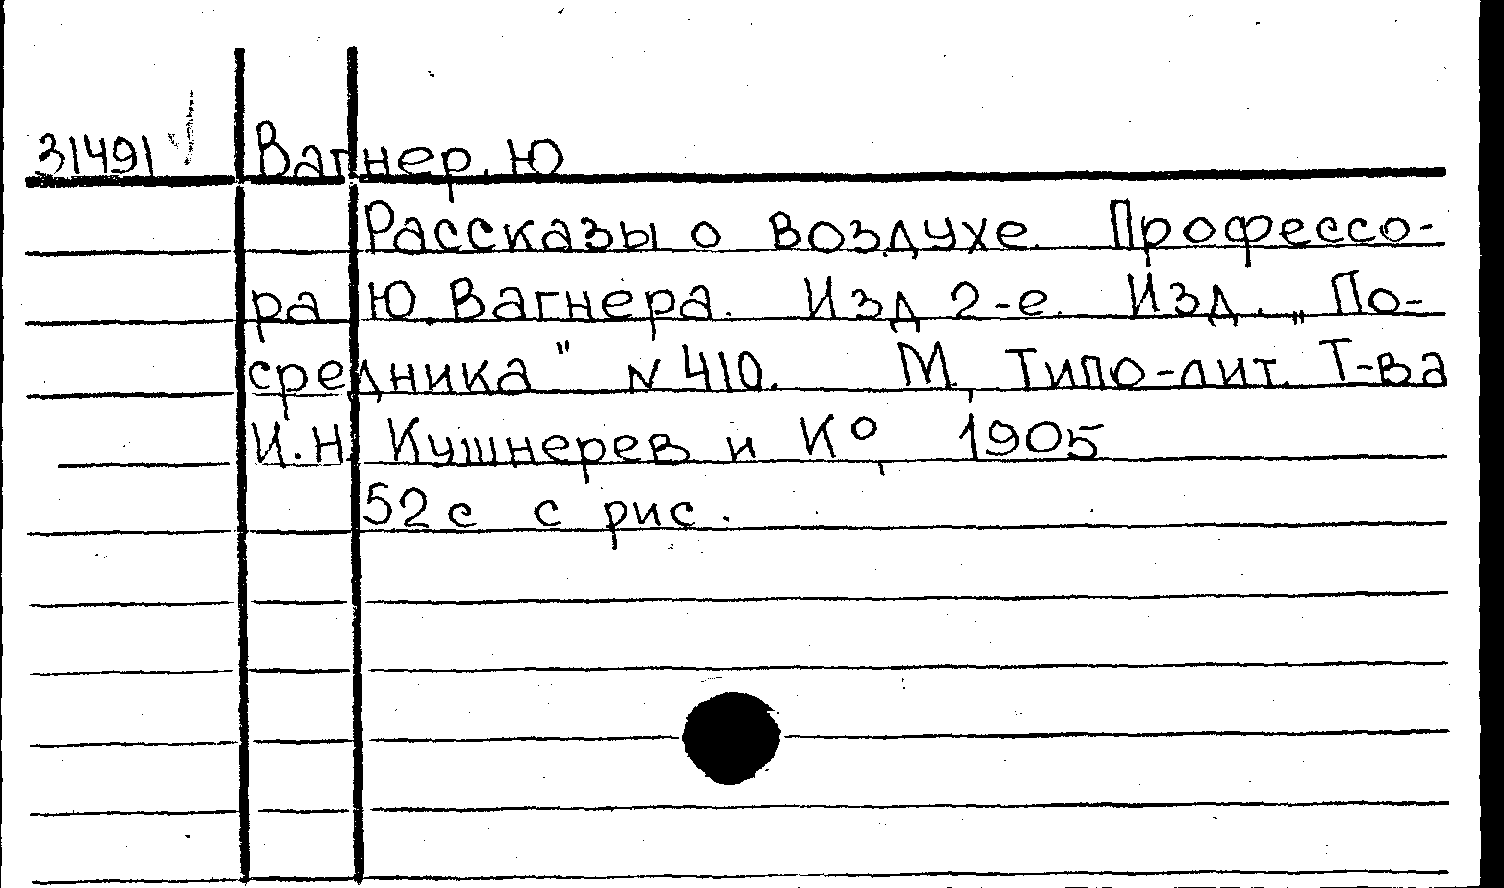 31491 Вагнер, Ю
Рассказы о воздухе. Профессо-
ра Ю. Вагнера. Изд 2-е. Изд. „По-
средника" N 410. М, Типо-лит. Т-ва
И.Н. Кушнерев и К°, 1905
52 с с рис.